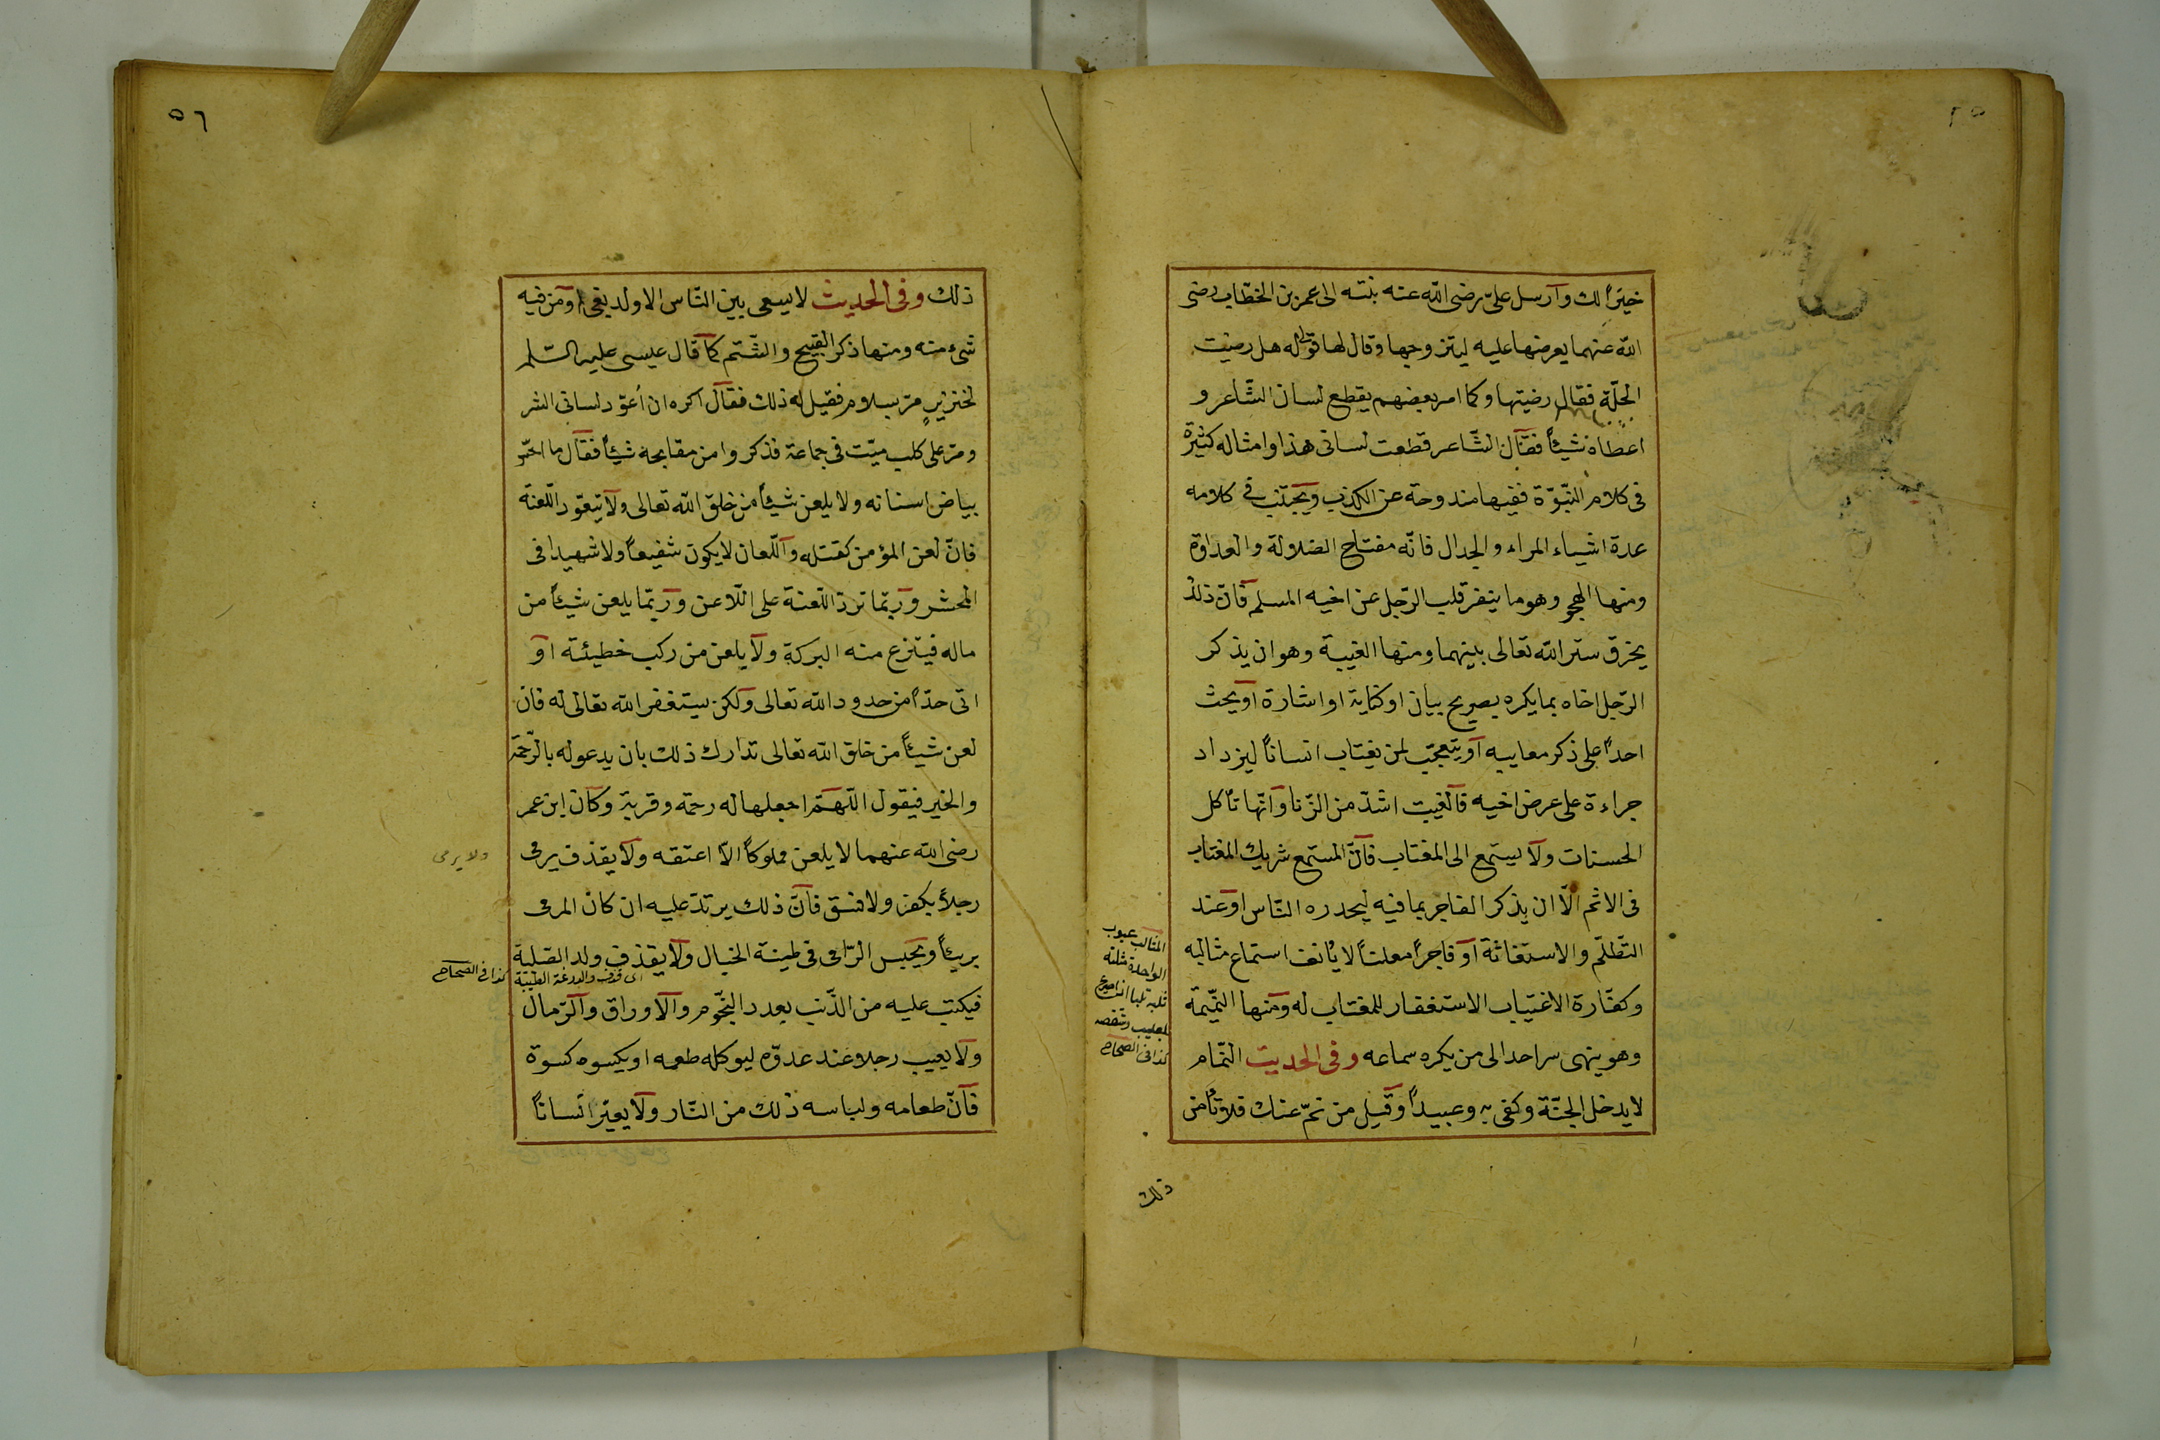 خيرًا لك وارسل علىّ رضى الله عنه بنته الى عمر بن الخطاب رضى
الله عنهما يعرضها عليه ليتزوجها وقال لها قولى له هل رضيت
الحلّة فقال رضيتها وكما امر بعضهم بقطع لسان الشّاعر و
اعطاه شيئاً فقال الشّاعر قطعت لسانى هذا وامثاله كثيرة
فى كلام النبّوّة ففيها مندوحة عن الكذب ويجتنب فى كلامه
عدة اشياء المراء والجدال فانّه مفتاح الضلالة والعداوة
ومنها الهجو وهو ما ينفر قلب الرّجل عن اخيه المسلم فانّ ذلك
يخرق ستر الله تعالى بينهما ومنها الغيبة وهو ان يذكر
الرّجل اخاه بما يكره بصريح بيان او كناية او اشارة او يحث
احدًا على ذكر معايبه او يتعجّب لمن يغتاب انساناً ليزداد
جراءة على عرض اخيه فالغيبت اشدّ من الزّنا وانّها تأكل
الحسنات ولا يستمع الى المغتاب فانّ المستمع شريك المغتاب
فى الاثم الّا ان يذكر الفاجر بما فيه ليحذره النّاس او عند
التّظلّم والاستغاثة او فاجراً معلناً لا يأنف استماع مثالبه
وكفّارة الاغتياب الاستغفار للمغتاب له ومنها النّميمة
وهو ينهى سر احد الى من يكره سماعه وفى الحديث النّمام
لا يدخل الجنّة وكفى به وعيداً وقيل من نمّ عنك فلا تأمن
المثالب عيوب
الواحدة مثلبة
ثلبه ثلبا اذا صرح
بالعيب وتنقصه
كذا فى الصّحاح
ذلك
٥٦
ذلك وفى الحديث لا يسعى بين النّاس الا ولد بغى او من فيه
شئ منه ومنها ذكر القبيح والشّتم كما قال عيسى عليه السّلم
لخنزيرٍ مرّ بسلام فقيل له ذلك فقال اكره ان اُعوّد لسانى الشر
ومرّ على كلب ميّت فى جماعة فذكروا من مقابحه شيئاً فقال ما احسن
بياض اسنانه ولا يلعن شيئاً من خلق الله تعالى ولا يتعوّد اللّعنة
فانّ لعن المؤمن كقتله واللّعان لا يكون شفيعاً ولا شهيدا فى
المحشر وربّما تردّ اللّعنة على اللّاعن وربّما يلعن شيئاً من
ماله فينتزع منه البركة ولا يلعن من ركب خطيئة او
اتى حدّاً من حدود الله تعالى ولكن يستغفر الله تعالى له فان
لعن شيئاً من خلق الله تعالى تدارك ذلك بان يدعو له بالرّحمة
والخير فيقول اللّهمّ اجعلها له رحمة وقربة وكان ابن عمر
رضى الله عنهما لا يلعن مملوكاً الّا اعتقه ولا يقذف يرمى
رجلاً بكفر ولا فسق فانّ ذلك يرتدّ عليه ان كان المرمى
بريئاً ويحبس الرّامى فى طينة الخبال ولا يقذف ولد الصّلبة
فيكتب عليه من الذّنب بعدد النّجوم والاوراق والرّمال
ولا يعيب رجلا عند عدوّه ليوكله طعمه او يكسوه كسوة
فانّ طعامه ولباسه ذلك من النّار ولا يعيّر انساناً
ولا يرمى
كذا فى الصحاح